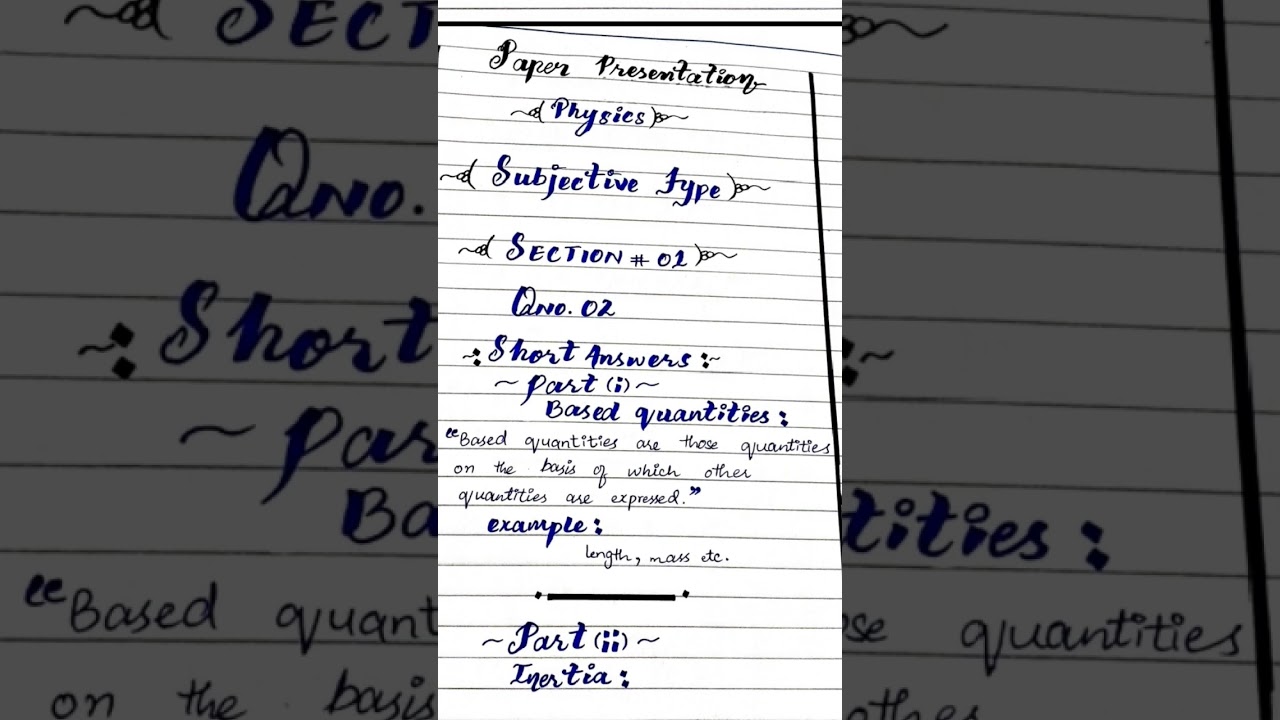 Paper Presentation
(Physics)
(Subjective Type)
(SECTION # 01)
QNO. 02
Short Answers:
~ Part (i) ~
Based quantities:
"Based quantities are those quantities
on the basis of which other
quantities are expressed."
example:
length, mass etc.
~ Part (ii) ~
Inertia: